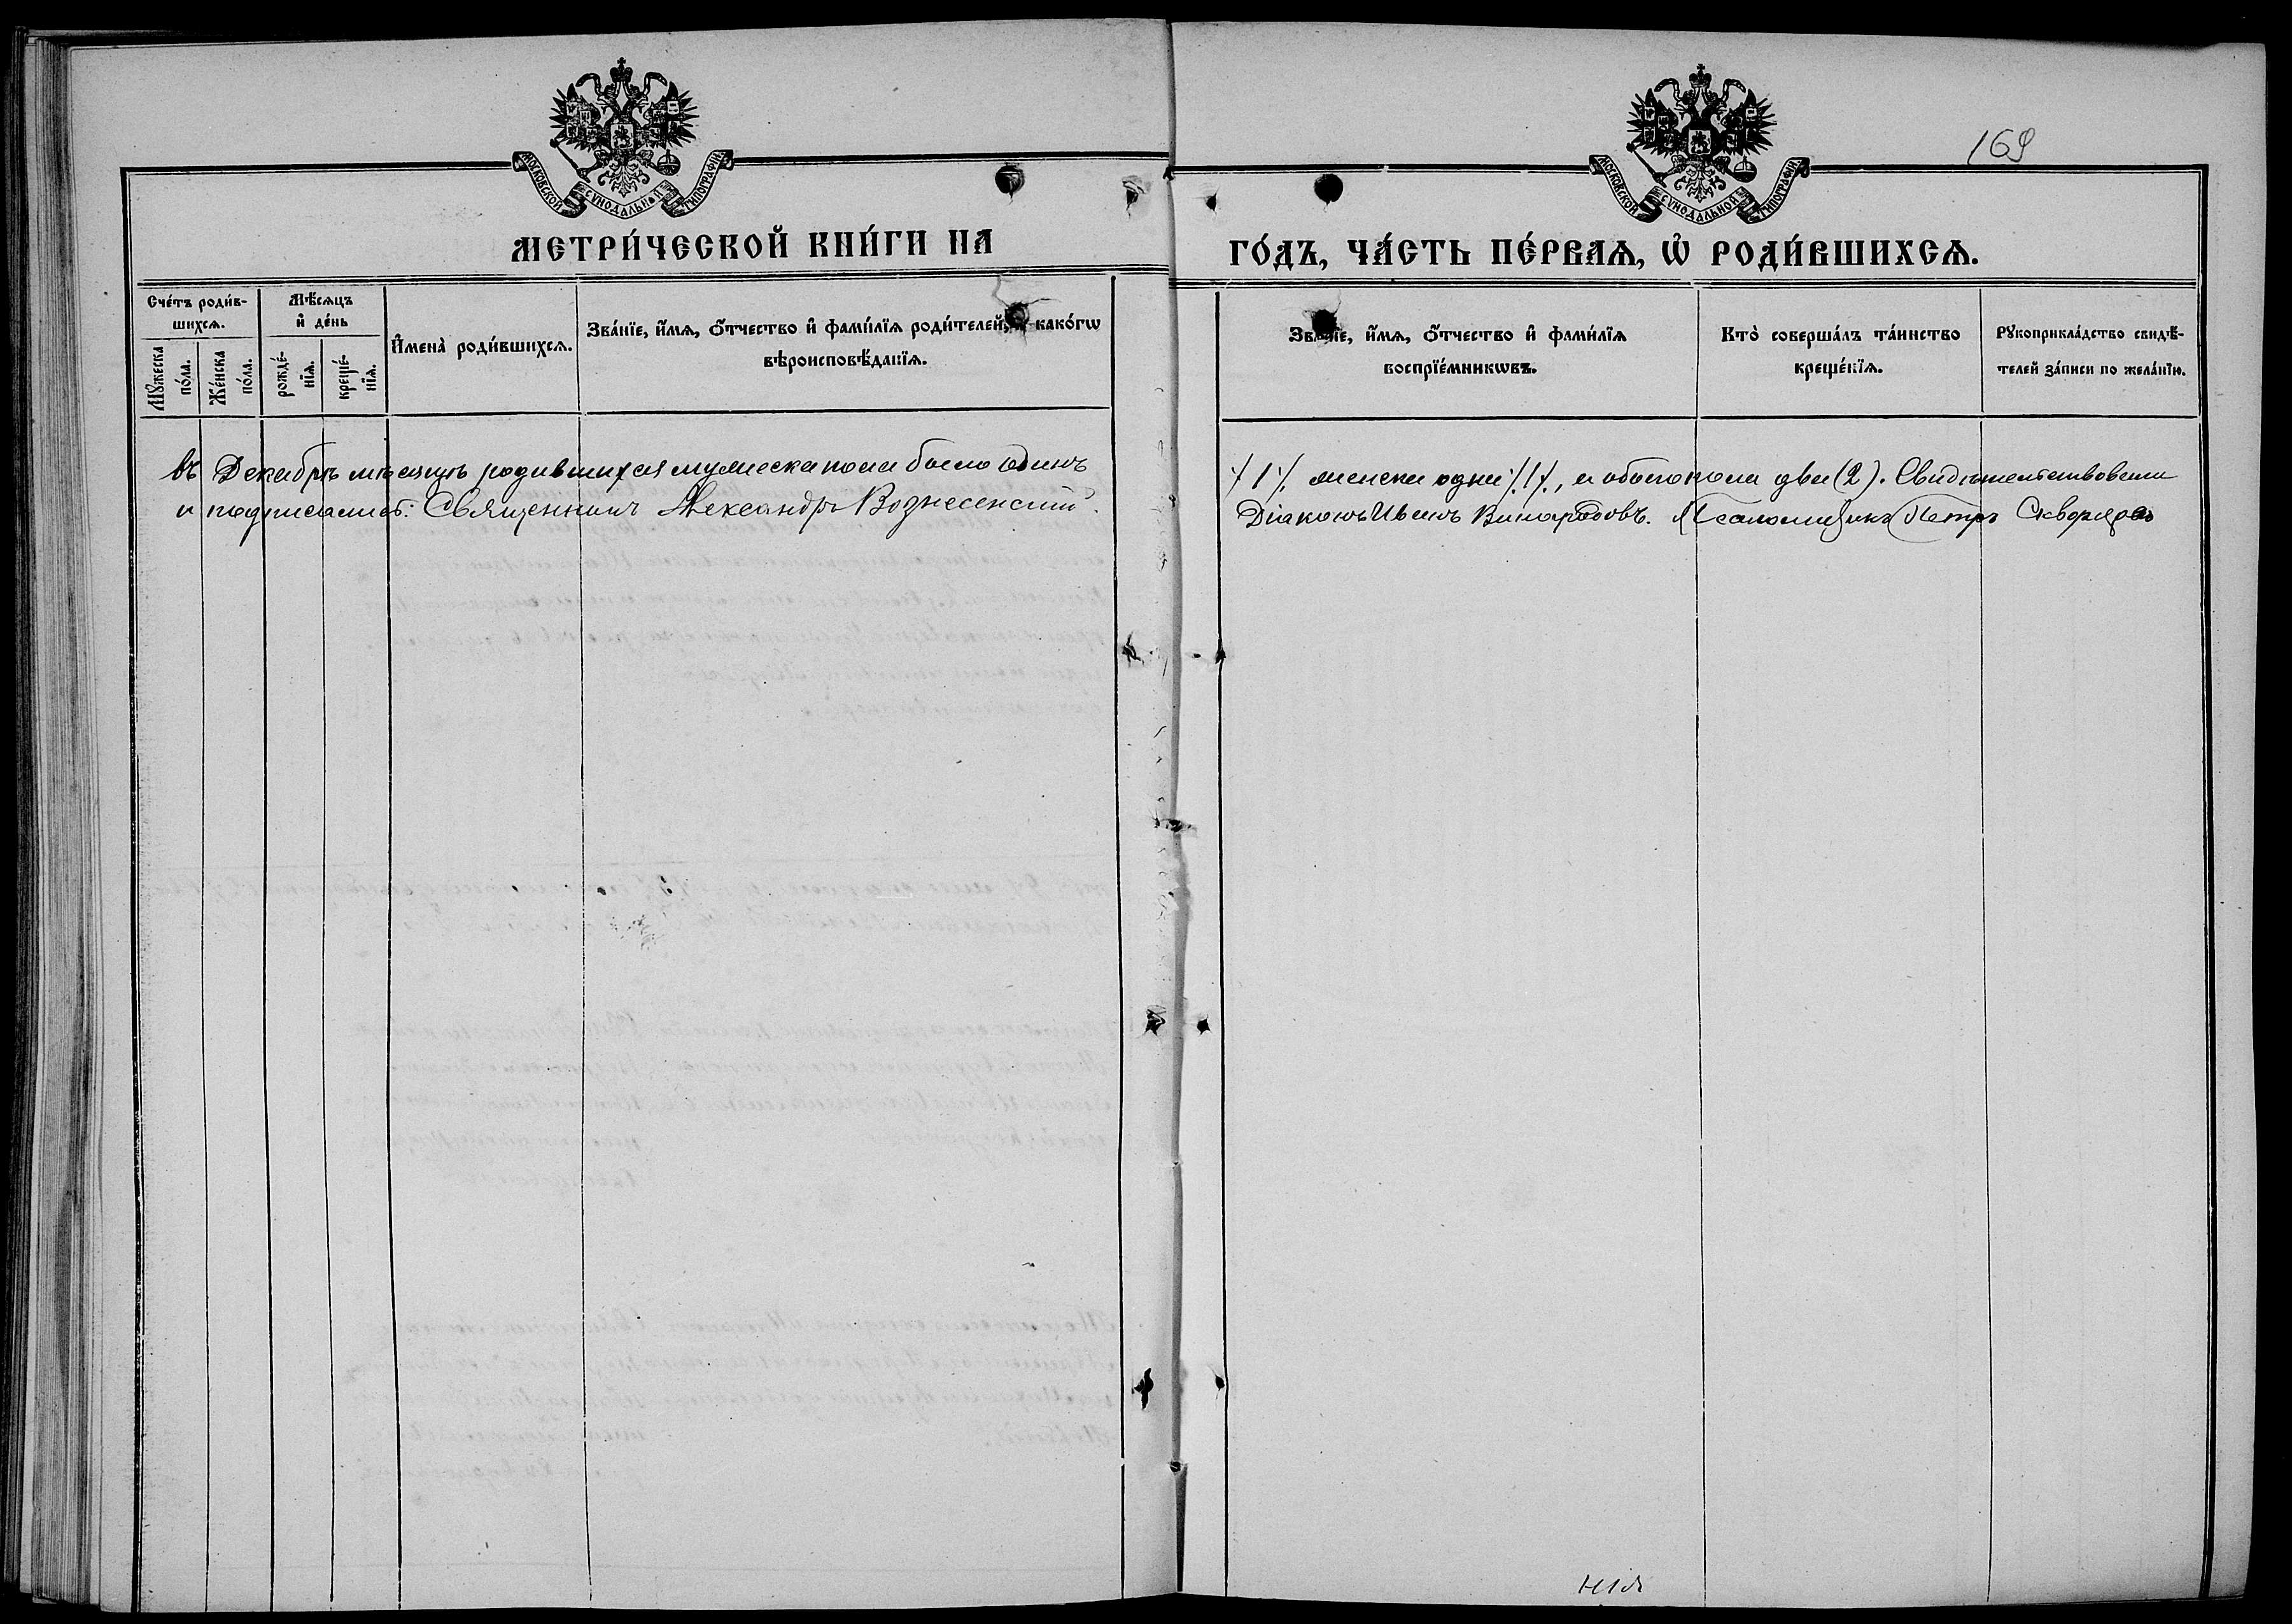 169
МОСКОВСКОЙ СѴНОДАЛЬНОЙ ТИПОГРАФІИ
МОСКОВСКОЙ СѴНОДАЛЬНОЙ ТИПОГРАФІИ
МЕТРИ́ЧЕСКОЙ КНИ́ГИ НА ГО́ДЪ, ЧА́СТЬ ПЕ́РВАѦ, Ѡ҆ РОДИ́ВШИХСѦ.
Сче́тъ роди́в-
шихсѧ.
Мꙋ́жеска
по́ла.
Же́нска
по́ла.
Мѣ́сѧцъ
и҆ де́нь
рожде́-
нїѧ.
креще́-
нїѧ.
И҆мена̀ роди́вшихсѧ.
Зва́нїе, и҆́мѧ, ѻ҆́тчество и҆ фами́лїѧ роди́телей, и҆ како́гѡ
вѣроисповѣ́данїѧ.
Зва́нїе, и҆́мѧ, ѻ҆́тчество и҆ фами́лїѧ
воспрїе́мникѡвъ.
Кто̀ соверша́лъ та́инство
креще́нїѧ.
Рꙋкоприкла́дство свидѣ́-
телей за́писи по жела́нїю.
въ Декабрѣ мѣсяцѣ родившихся мужеска пола было одинъ ./1/. женска одна ./1/., и обоего пола два (2). Свидѣтельствовали
и подписались: Священникъ Александръ Вознесенскій. Діаконъ Иванъ Виноградовъ. Псаломщикъ Петръ Скворцовъ